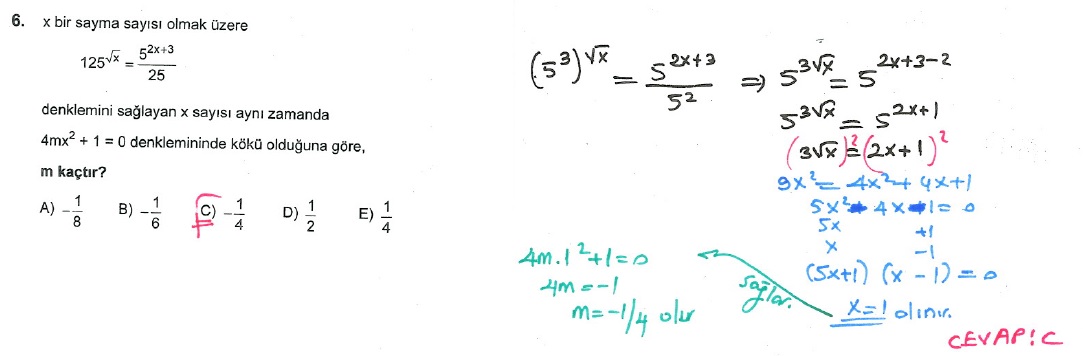 6. x bir sayma sayısı olmak üzere
125^√x = 5^(2x+3)/25
denklemini sağlayan x sayısı aynı zamanda
4mx² + 1 = 0 denklemininde kökü olduğuna göre,
m kaçtır?
A) -1/8 B) -1/6 C) -1/4 D) 1/2 E) 1/4
(5³)^√x = 5^(2x+3)/5² ⇒ 5^(3√x) = 5^(2x+3-2)
5^(3√x) = 5^(2x+1)
(3√x)² = (2x+1)²
9x² = 4x² + 4x + 1
5x² - 4x - 1 = 0
5x +1
x -1
(5x+1) (x - 1) = 0
x=1 alınır.
sağlar.
4m.1²+1=0
4m = -1
m = -1/4 olur
CEVAP: C